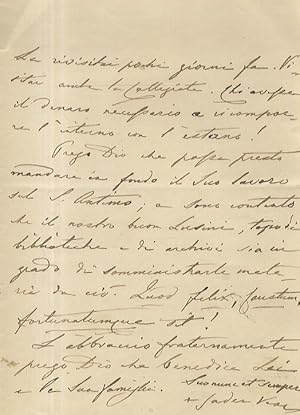 La rivisitai pochi giorni fa. Vi-
sitai anche la Collegiata. Chi avesse
il denaro necessario a ricompor-
re l'interno con l'esterno!
Prego Dio che possa presto
mandare in fondo il Suo lavoro
sul S. Antimo; e sono contento
che il nostro buon Lusini, topo di
biblioteche e di archivi sia in
grado di somministrarle mate-
rie da ciò. Quod felix, faustum,
fortunatumque sit!
L'abbraccio fraternamente
prego Dio che benedica Lei
e la Sua famiglia. Suo nunc et semper